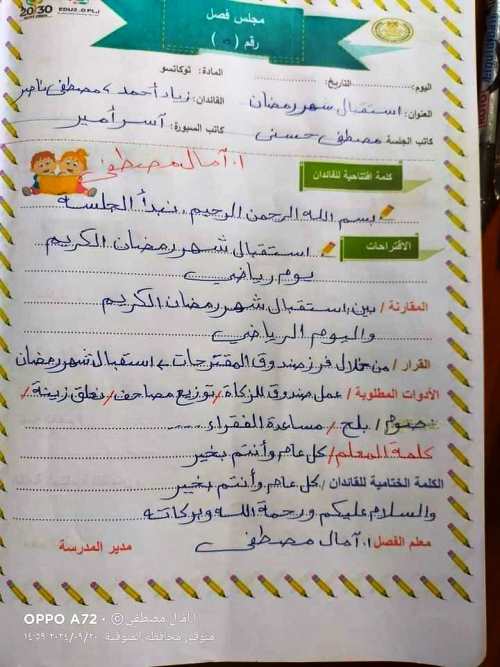 20 30
EDU2.0
مجلس فصل
رقم (٥)
اليوم: التاريخ: المادة: توكاتسو
العنوان: استقبال شهر رمضان القائدان: زياد أحمد > مصطفى ناصر
كاتب الجلسة مصطفى حسنى كاتب السبورة: آسر أمير
ا. آمال مصطفى
كلمة افتتاحية للقائدان
بسم الله الرحمن الرحيم، نبدأ الجلسة
الاقتراحات استقبال شهر رمضان الكريم
يوم رياضي
المقارنة / بين: استقبال شهر رمضان الكريم
واليوم الرياضي
القرار / من خلال فرز صندوق المقترحات استقبال شهر رمضان
الأدوات المطلوبة / عمل صندوق للزكاة / توزيع مصاحف / نعلق زينة /
/ بلح / مساعدة الفقراء
كلمة المعلم / كل عام وأنتم بخير
الكلمة الختامية للقائدان / كل عام وأنتم بخير
والسلام عليكم ورحمة الله وبركاته
معلم الفصل ا. آمال مصطفى مدير المدرسة
OPPO A72 · © ا.امال مصطفي
منوف، محافظة المنوفية ٢٠٢٤/٠٩/٢٠ ١٤:٥٩